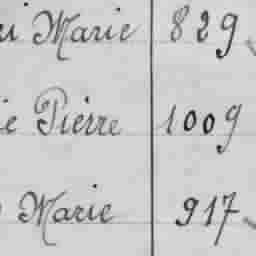 Marie 829
Pierre 1009
Marie 917